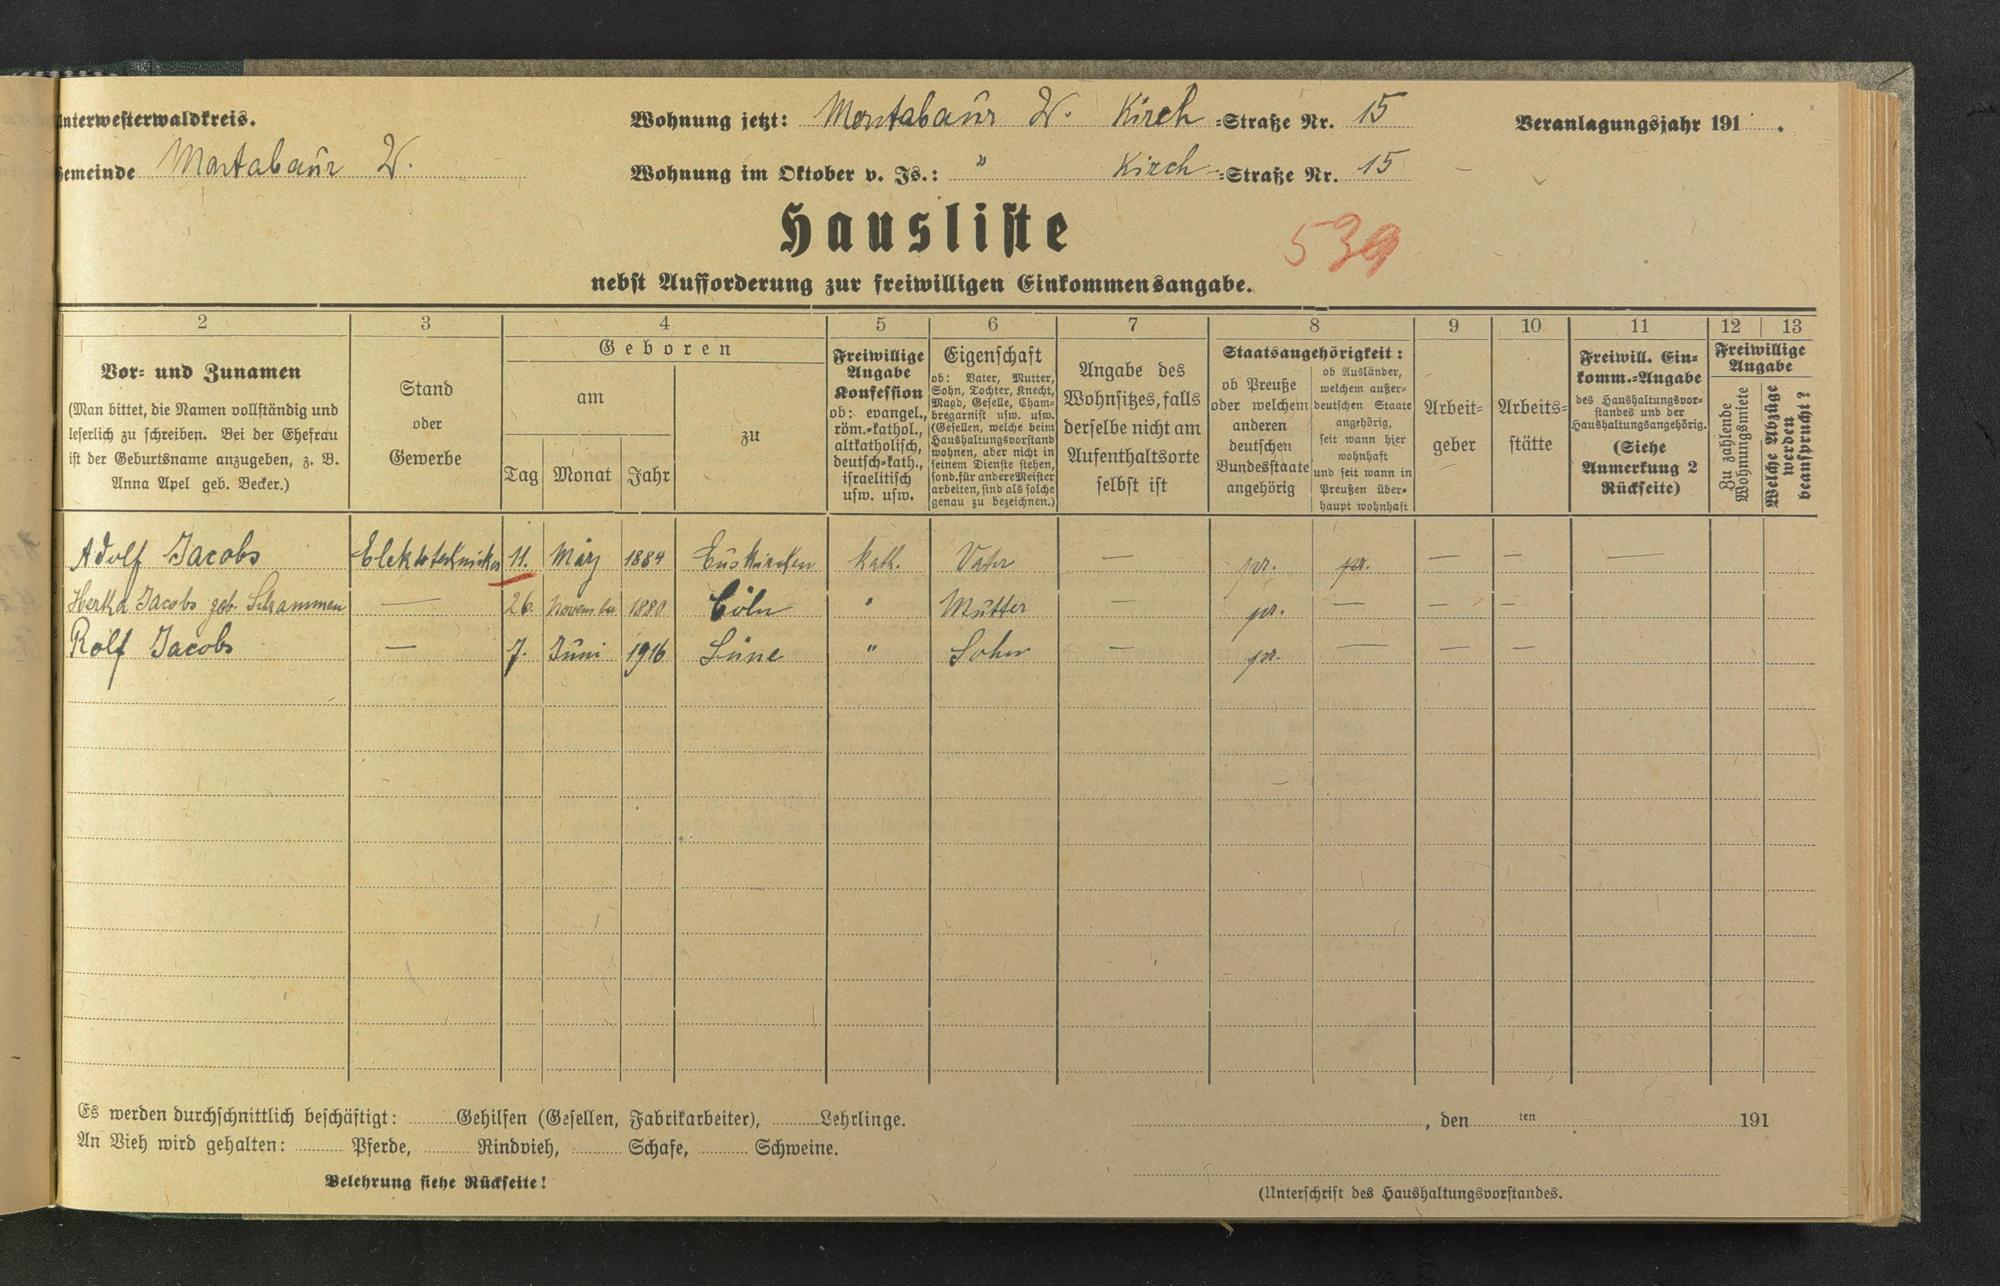 Unterwesterwaldkreis.
Wohnung jetzt: Montabaur W. Kirch-Straße Nr. 15
Veranlagungsjahr 191 .
Gemeinde Montabaur W.
Wohnung im Oktober v. Js.: " Kirch-Straße Nr. 15
Hausliste
539
nebst Aufforderung zur freiwilligen Einkommensangabe.
2 3 4 5 6 7 8 9 10 11 12 13
Vor- und Zunamen
(Man bittet, die Namen vollständig und
leserlich zu schreiben. Bei der Ehefrau
ist der Geburtsname anzugeben, z. B.
Anna Apel geb. Becker.)
Stand
oder
Gewerbe
Geboren
am
Tag Monat Jahr
zu
Freiwillige
Angabe
Konfession
ob: evangel.,
röm.-kathol.,
altkatholisch,
deutsch-kath.,
israelitisch
usw. usw.
Eigenschaft
ob: Vater, Mutter,
Sohn, Tochter, Knecht,
Magd, Geselle, Cham-
bregarnist usw. usw.
(Gesellen, welche beim
Haushaltungsvorstand
wohnen, aber nicht in
seinem Dienste stehen,
sond. für andere Meister
arbeiten, sind als solche
genau zu bezeichnen.)
Angabe des
Wohnsitzes, falls
derselbe nicht am
Aufenthaltsorte
selbst ist
Staatsangehörigkeit:
ob Preuße
oder welchem
anderen
deutschen
Bundesstaate
angehörig
ob Ausländer,
welchem außer-
deutschen Staate
angehörig,
seit wann hier
wohnhaft
und seit wann in
Preußen über-
haupt wohnhaft
Arbeit-
geber
Arbeits-
stätte
Freiwill. Ein-
komm.-Angabe
des Haushaltungsvor-
standes und der
Haushaltungsangehörig.
(Siehe
Anmerkung 2
Rückseite)
Freiwillige
Angabe
Zu zahlende
Wohnungsmiete
Welche Abzüge
werden
beansprucht?
Adolf Jacobs Elektrotechniker 11. März 1884 Euskirchen kath. Vater — pr. pr. — — —
Hertha Jacobs geb. Schrammen — 26. November 1880 Cöln " Mutter — pr. — — —
Rolf Jacobs — 7. Juni 1916 Lüne " Sohn — pr. — — —
Es werden durchschnittlich beschäftigt: Gehilfen (Gesellen, Fabrikarbeiter), Lehrlinge.
, den ten 191
An Vieh wird gehalten: Pferde, Rindvieh, Schafe, Schweine.
Belehrung siehe Rückseite!
(Unterschrift des Haushaltungsvorstandes.